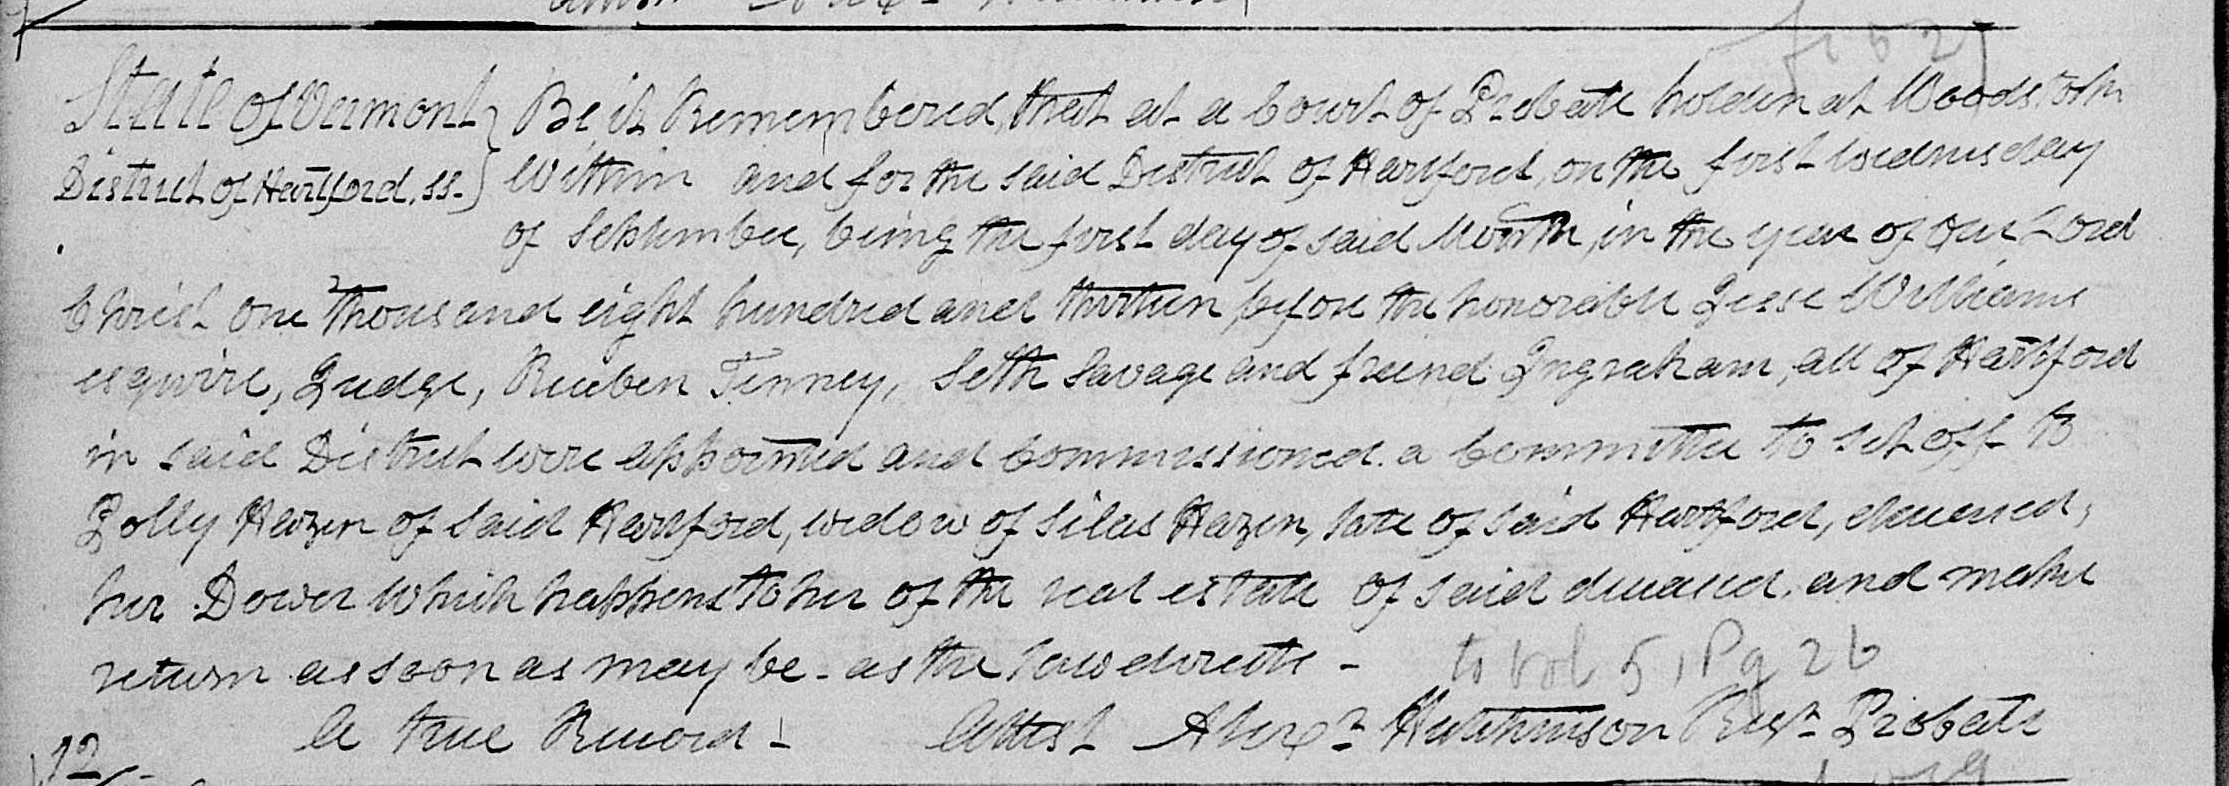 State of Vermont } Be it Remembered, that at a Court of Probate holden at Woodstock
District of Hartford. ss. } Within and for the said District of Hartford, on the first wednesday
of September, being the first day of said Month, in the year of our Lord
Christ one thousand eight hundred and thirteen, before the honorable Jesse Williams
esquire, Judge, Reuben Tenney, Seth Savage and friend Ingraham, all of Hartford
in said District were appointed and Commissioned a Committee to set off to
Polly Hazen of said Hartford, widow of Silas Hazen, late of said Hartford, deceased,
her Dower which happens to her of the real estate of said deceased. and make
return as soon as may be - as the law directs -
to Vol 5, Pg 26
A true Record - Attest Alexr Hutchinson Regr Probate
12